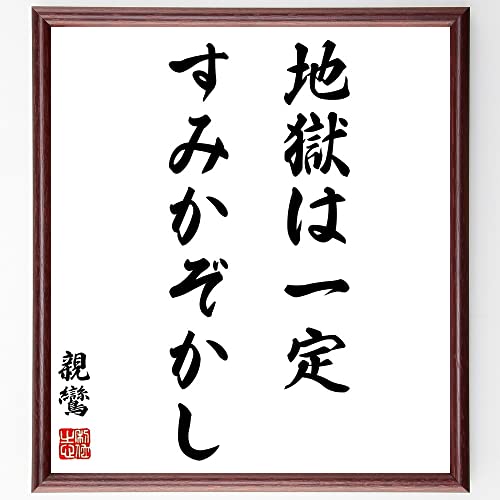 地獄は一定
すみかぞかし
親鸞